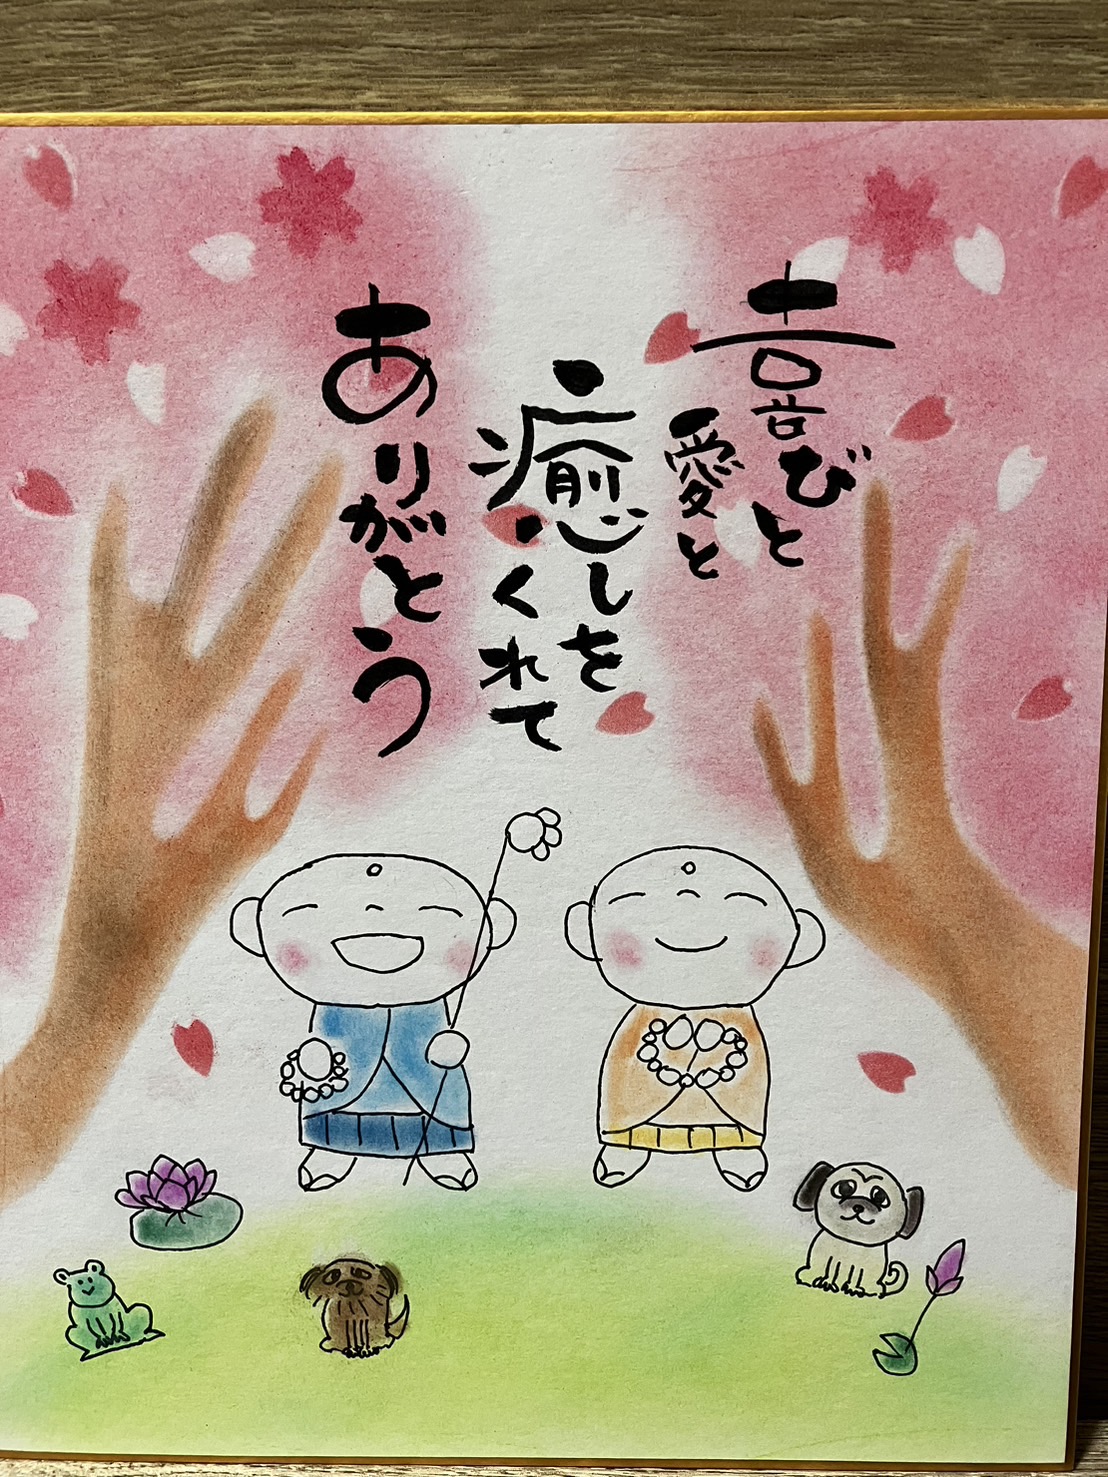 喜びと
愛と
癒しを
くれて
ありがとう